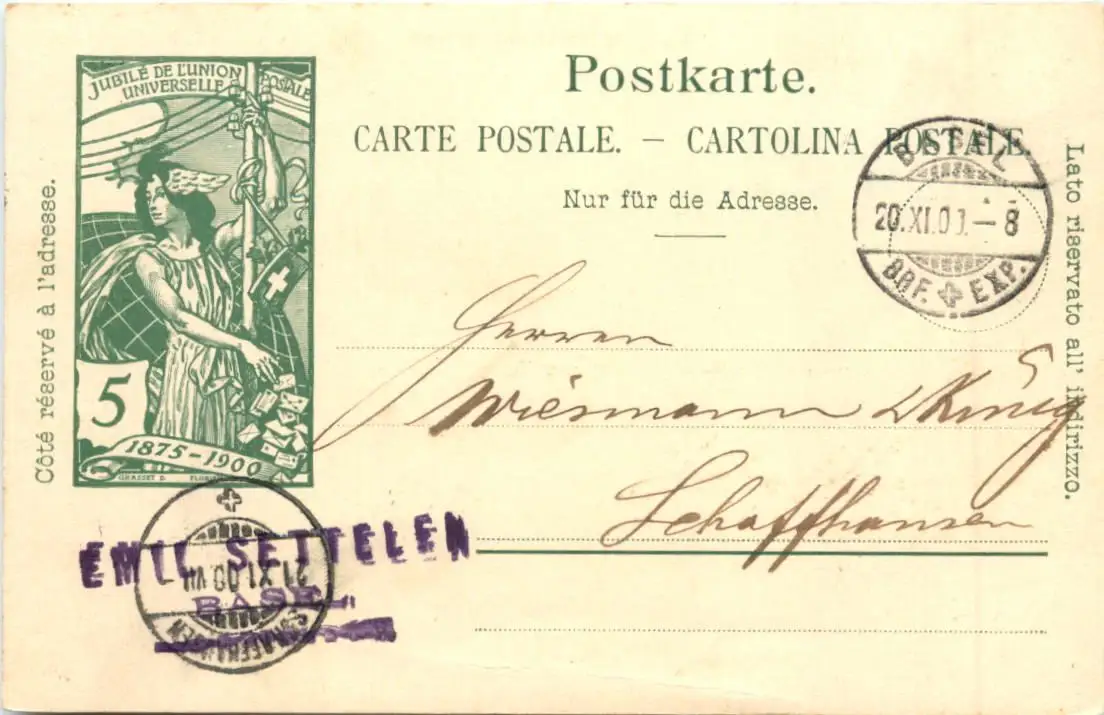 JUBILÉ DE L'UNION
UNIVERSELLE POSTALE
5
1875-1900
GRASSET D.
Côté réservé à l'adresse.
Postkarte.
CARTE POSTALE. — CARTOLINA POSTALE.
Nur für die Adresse.
Lato riservato all' indirizzo.
BASEL
20.XI.00.-8
BRF. EXP.
Herren
Wiesmann & König
Schaffhausen
EMIL SETTELEN
BASEL
21.XI.00.VII
SCHAFFHAUSEN